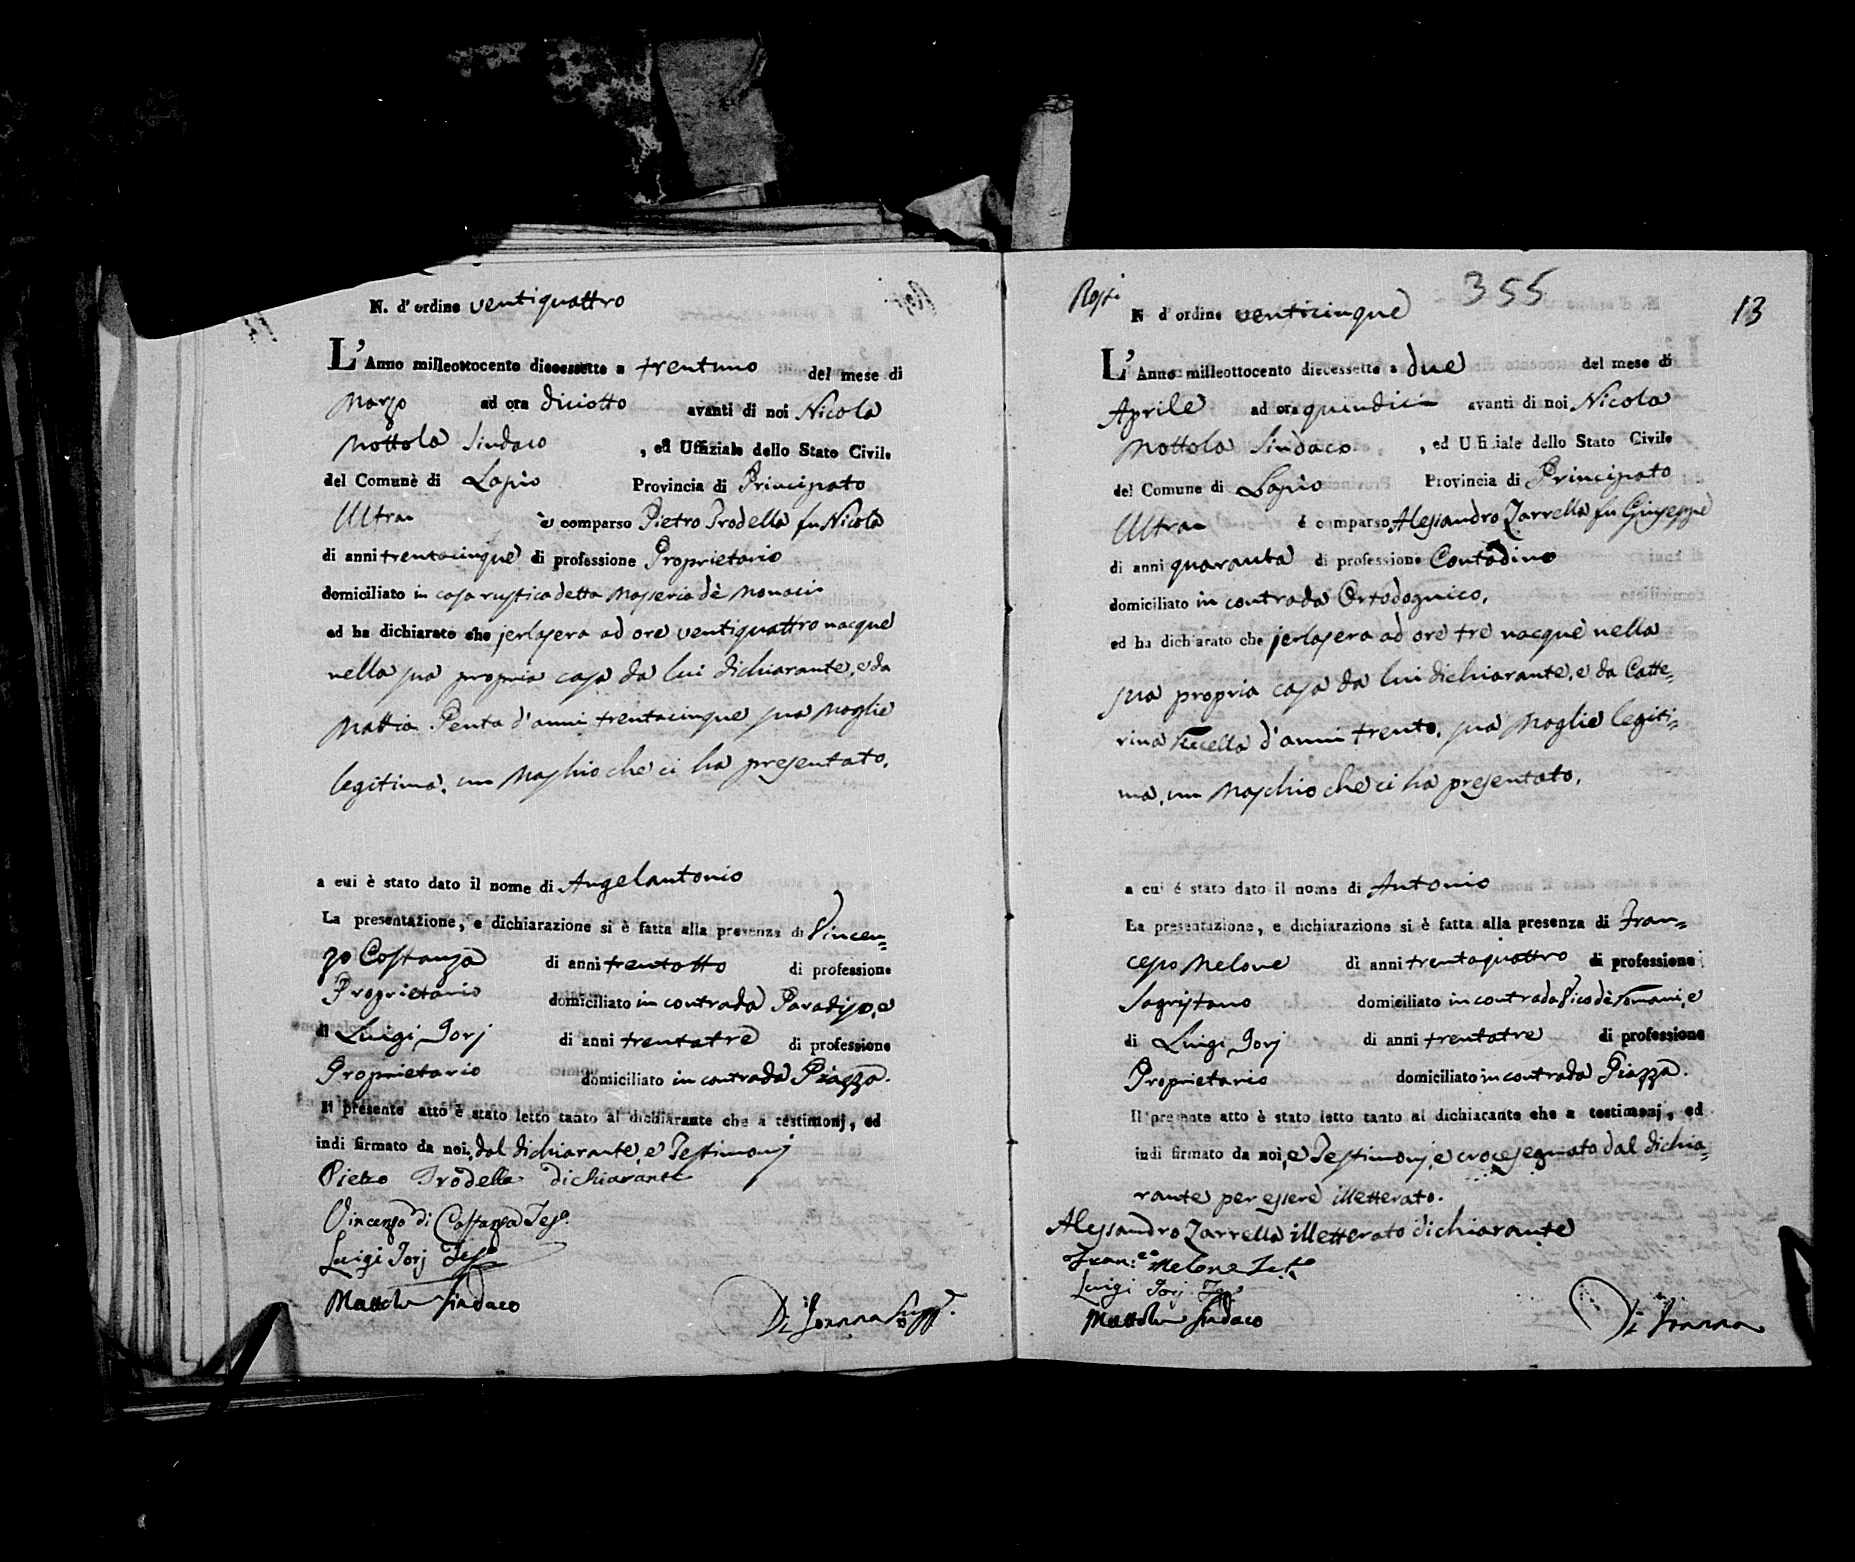 N. d'ordine ventiquattro
L'Anno milleottocento diecessette a trentuno del mese di
Marzo ad ora diciotto avanti di noi Nicola
Mottola Sindaco , ed Uffiziale dello Stato Civile
del Comune di Lapio Provincia di Principato
Ultra è comparso Pietro Trodella fu Nicola
di anni trentacinque di professione Proprietario
domiciliato in casa rustica detta Masseria dè Monaci
ed ha dichiarato che jerlasera ad ore ventiquattro nacque
nella sua propria casa da lui dichiarante, e da
Mattia Penta d'anni trentacinque sua Moglie
legitima, un Maschio che ci ha presentato.
a cui è stato dato il nome di Angelantonio
La presentazione, e dichiarazione si è fatta alla presenza di Vincen=
zo Costanza di anni trentotto di professione
Proprietario domiciliato in contrada Paradiso, e
di Luigi Jorj di anni trentatre di professione
Proprietario domiciliato in contrada Piazza.
Il presente atto è stato letto tanto al dichiarante che a testimonj, ed
indi firmato da noi, dal dichiarante, e Testimonj
Pietro Trodella dichiarante
Vincenzo di Costanza Teso.
Luigi Jorj Teso
Mottola Sindaco
Di Joanna
355
13
N d'ordine venticinque
L'Anno milleottocento diecessette a due del mese di
Aprile ad ora quindici avanti di noi Nicola
Mottola Sindaco , ed Uffiziale dello Stato Civile
del Comune di Lapio Provincia di Principato
Ultra é comparso Alesiandro Zarrella fu Giuseppe
di anni quaranta di professione Contadino
domiciliato in contrada Ortodognico,
ed ha dichiarato che jerlasera ad ore tre nacque nella
sua propria casa da lui dichiarante, e da Catte=
rina d'anni trenta, sua Moglie legiti=
ma, un Maschio che ci ha presentato.
a cui é stato dato il nome di Antonio
La presentazione, e dichiarazione si è fatta alla presenza di Fran=
cesco Melone di anni trentaquattro di professione
Sagristano domiciliato in contrada Vico dè , e
di Luigi Jorj di anni trentatre di professione
Proprietario domiciliato in contrada Piazza.
Il presente atto è stato letto tanto al dichiarante che a testimonj, ed
indi firmato da noi, e Testimonj, e crocesegnato dal dichia=
rante per essere illetterato.
Alessandro Zarrella illetterato dichiarante
Fran:co Melone Testo
Luigi Jorj
Mottola Sindaco
Di Joanna